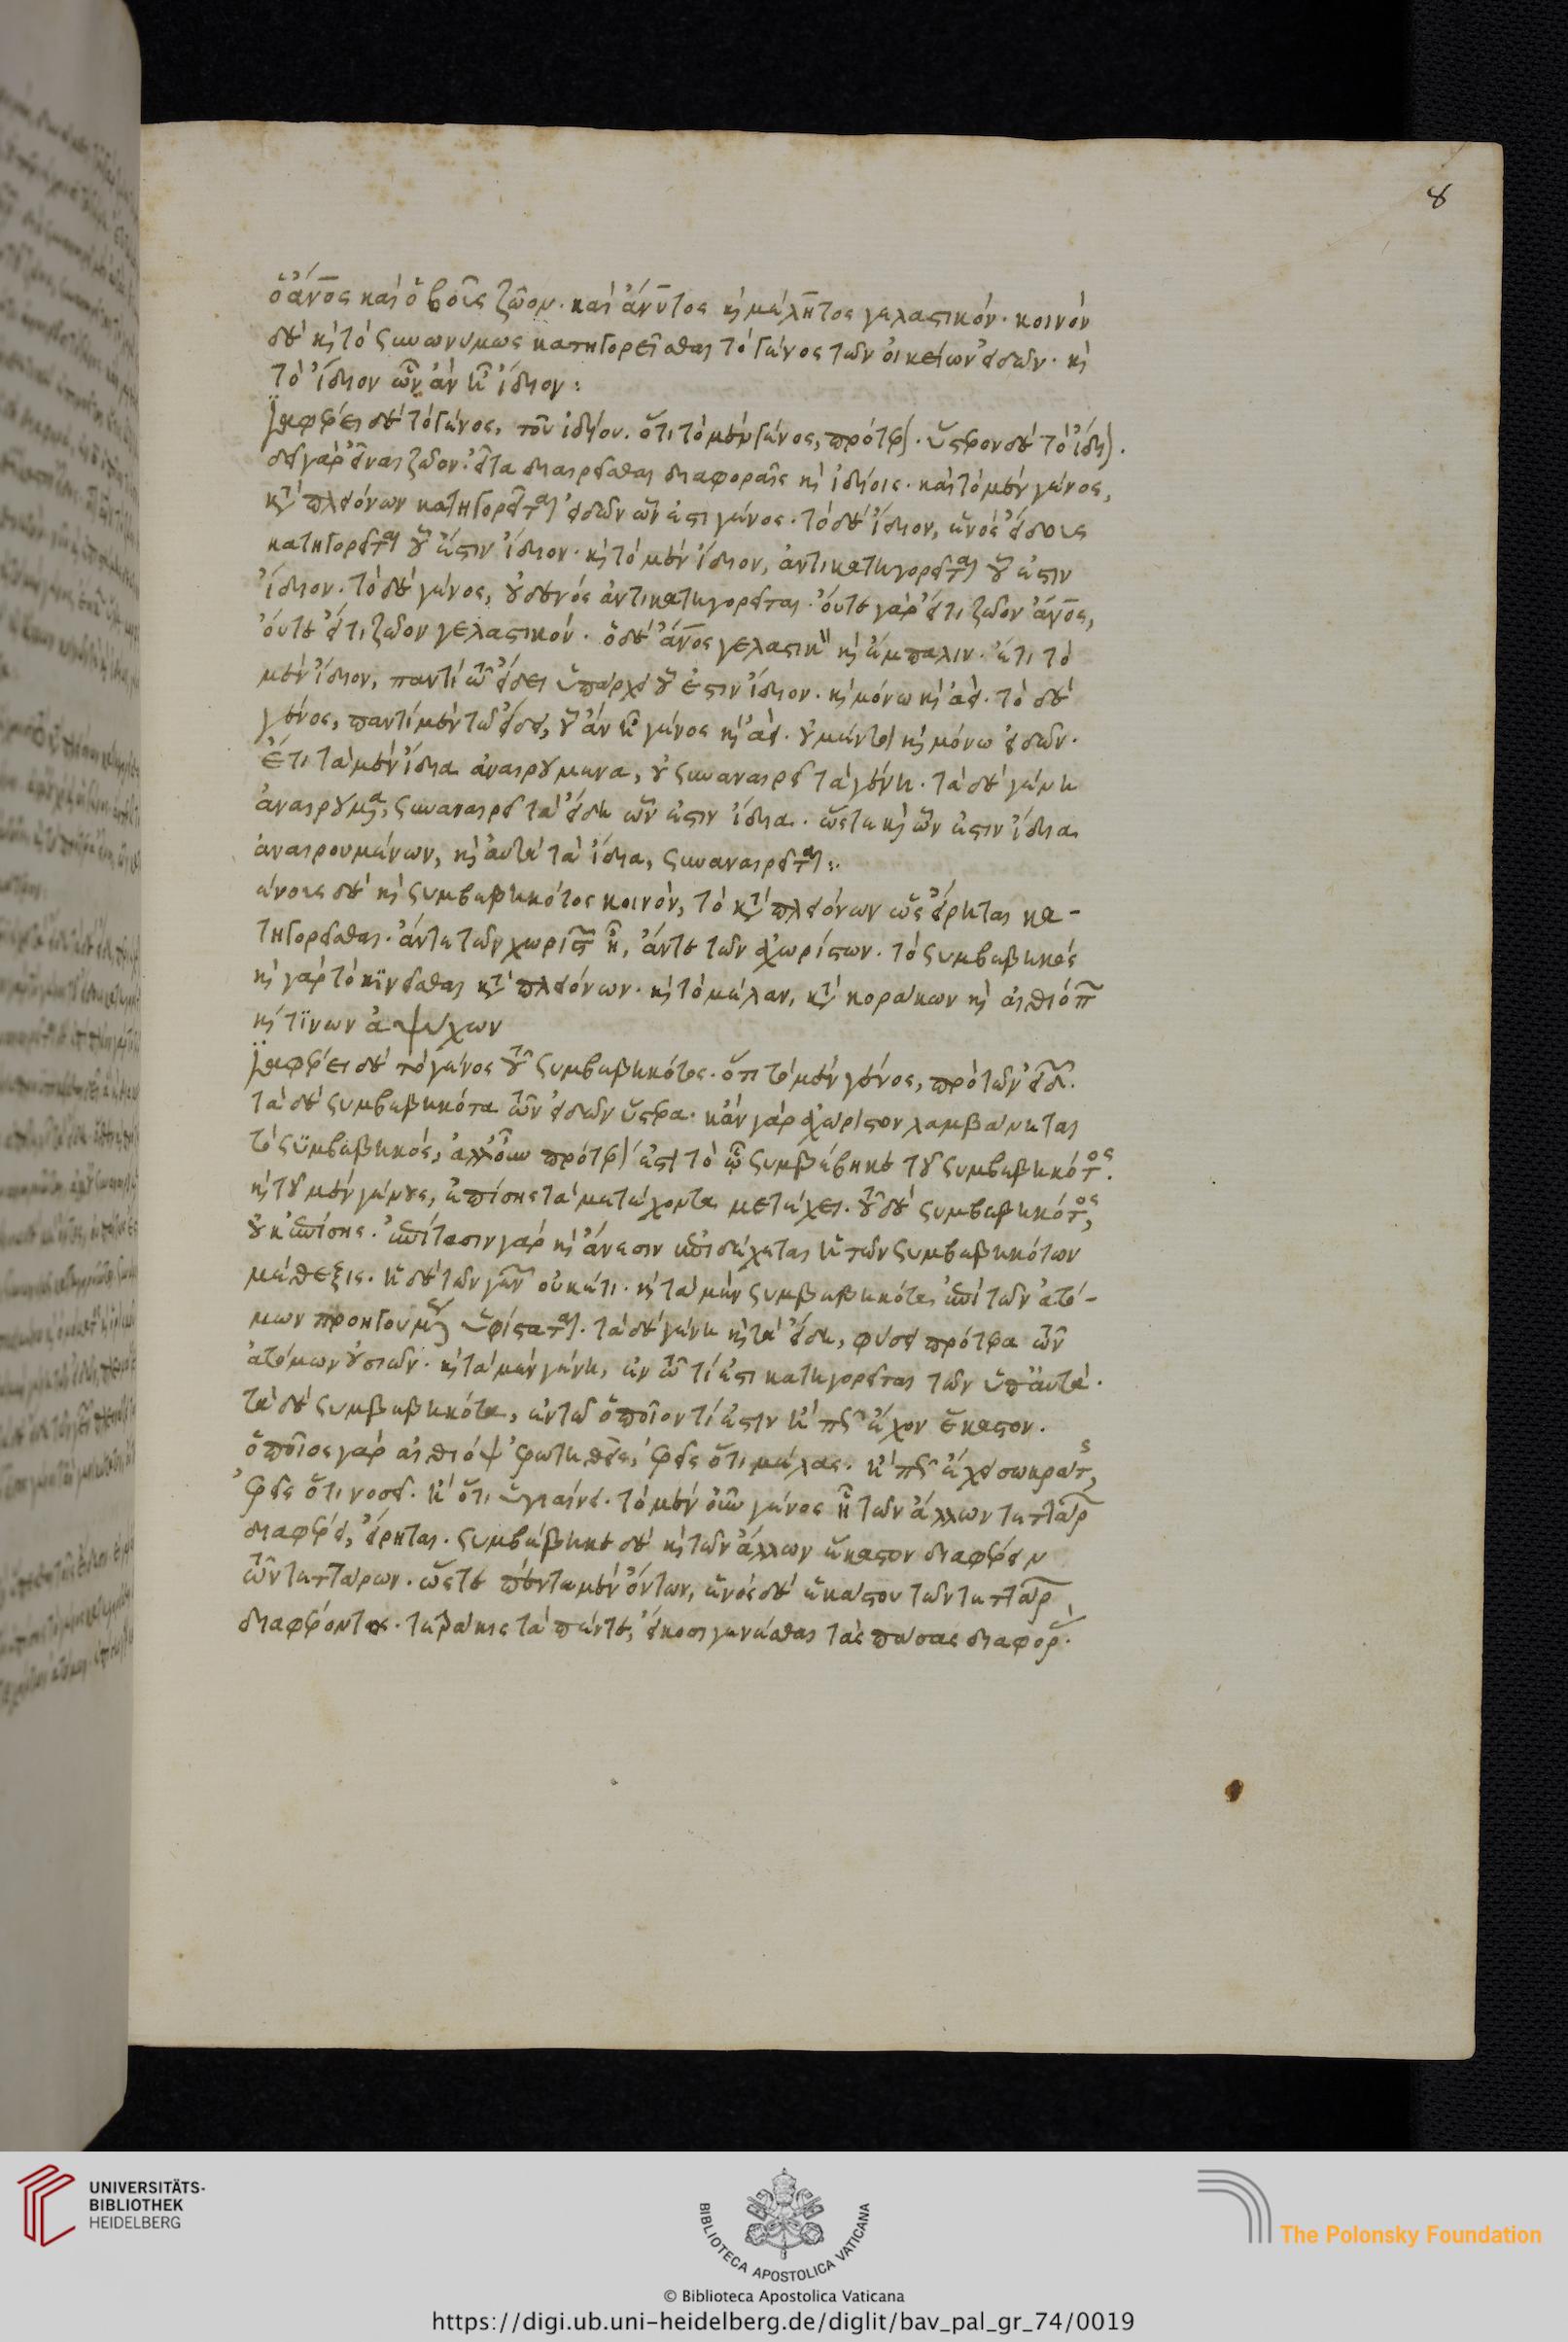 8
ὁ ἄνος καὶ ὁ βοῦς ζῶον. καὶ ἄνυτος κ̀ μέλητος γελαστικόν. κοινὸν
δὲ κ̀ τὸ συνωνύμως κατηγορεῖσθαι τὸ γένος τῶν οἰκείων εἰδῶν. κ̀
τὸ ἴδιον ὧν ἂν ᾖ ἴδιον:
Διαφέρει δὲ τὸ γένος, τοῦ ἰδίου. ὅτι τὸ μὲν γένος, πρότερον. ὕστερον δὲ τὸ ἴδιον.
δεῖ γὰρ εἶναι ζῶον. εἶτα διαιρεῖσθαι διαφοραῖς κ̀ ἰδίοις. καὶ τὸ μὲν γένος,
κτ̀ πλειόνων κατηγορεῖται εἰδῶν ὧν ἐστι γένος. τὸ δὲ ἴδιον, ἑνὸς εἴδους
κατηγορεῖται οὗ ἐστιν ἴδιον. κ̀ τὸ μὲν ἴδιον, ἀντικατηγορεῖται οὗ ἐστιν
ἴδιον. τὸ δὲ γένος, οὐδενὸς ἀντικατηγορεῖται. οὔτε γὰρ εἴ τι ζῶον ἄνος,
οὔτε εἴ τι ζῶον γελαστικόν. ὁ δὲ ἄνος γελαστικὸν κ̀ ἔμπαλιν. ἔτι τὸ
μὲν ἴδιον, παντὶ τῷ εἴδει ὑπάρχει οὗ ἐστιν ἴδιον. κ̀ μόνω κ̀ ἀεί. τὸ δὲ
γένος, παντὶ μὲν τῶ εἴδει, οὗ ἂν ᾖ γένος κ̀ ἀεί. οὐ μέντοι κ̀ μόνω εἰδῶν.
ἔτι τὰ μὲν ἴδια ἀναιρούμενα, οὐ συναναιρεῖ τὰ γένη. τὰ δὲ γένη
ἀναιρούμενα, συναναιρεῖ τὰ εἴδη ὧν ἐστιν ἴδια. ὥστε κ̀ ὧν ἐστιν ἴδια
ἀναιρουμένων, κ̀ αὐτὰ τὰ ἴδια, συναναιρεῖται:
ένους δὲ κ̀ συμβεβηκότος κοινὸν, τὸ κτ̀ πλειόνων ὡς εἴρηται κα-
τηγορεῖσθαι. ἄντε τῶν χωριστῶν ᾖ, ἄντε τῶν ἀχωρίστων. τὸ συμβεβηκὸς
κ̀ γὰρ τὸ κινεῖσθαι κτ̀ πλειόνων. κ̀ τὸ μέλαν, κτ̀ κοράκων κ̀ αἰθιόπων
κ̀ τινων ἀψύχων
Διαφέρει δὲ τὸ γένος τοῦ συμβεβηκότος. ὅτι τὸ μὲν γένος, πρὸ τῶν εἰδῶν.
τὰ δὲ συμβεβηκότα τῶν εἰδῶν ὕστερα. κἂν γὰρ ἀχώριστον λαμβάνηται
τὸ συμβεβηκὸς, ἀλλ' οὖν πρότερόν ἐστι τὸ ᾧ συμβέβηκε τοῦ συμβεβηκότος.
κ̀ τοῦ μὲν γένους, ἐπίσης τὰ μετέχοντα μετέχει. τοῦ δὲ συμβεβηκότος,
οὐκ ἐπίσης. ἐπίτασιν γὰρ κ̀ ἄνεσιν ἐπιδέχεται ἡ τῶν συμβεβηκότων
μέθεξις. ἡ δὲ τῶν γενῶν οὐκέτι. κ̀ τὰ μὲν συμβεβηκότα ἐπὶ τῶν ἀτό-
μων προηγουμένως ὑφίσταται. τὰ δὲ γένη κ̀ τὰ εἴδη, φύσει πρότερα τῶν
ἀτόμων οὐσιῶν. κ̀ τὰ μὲν γένη, ἐν τῷ τί ἐστι κατηγορεῖται τῶν ὑπ' αὐτά.
τὰ δὲ συμβεβηκότα, ἐν τῶ ὁποῖον τί ἐστιν ἢ πῶς ἔχον ἕκαστον.
ὁποῖος γὰρ αἰθιόψ ἐρωτηθεὶς, ἐρεῖς ὅτι μέλας. ἢ πῶς ἔχει σωκράτης,
ἐρεῖς ὅτι νοσεῖ. ἢ ὅτι ὑγιαίνει. τὸ μὲν οὖν γένος ᾗ τῶν ἄλλων τεττάρων
διαφέρει, εἴρηται. συμβέβηκε δὲ κ̀ τῶν ἄλλων ἕκαστον διαφέρειν
τῶν τεττάρων. ὥστε πέντε μὲν ὄντων, ἑνὸς δὲ ἑκάστου τῶν τεττάρων
διαφέροντος. τετράκις τὰ πέντε, εἴκοσι γενέσθαι τὰς πάσας διαφοράς.
UNIVERSITÄTS-
BIBLIOTHEK
HEIDELBERG
BIBLIOTECA APOSTOLICA VATICANA
The Polonsky Foundation
© Biblioteca Apostolica Vaticana
https://digi.ub.uni-heidelberg.de/diglit/bav_pal_gr_74/0019